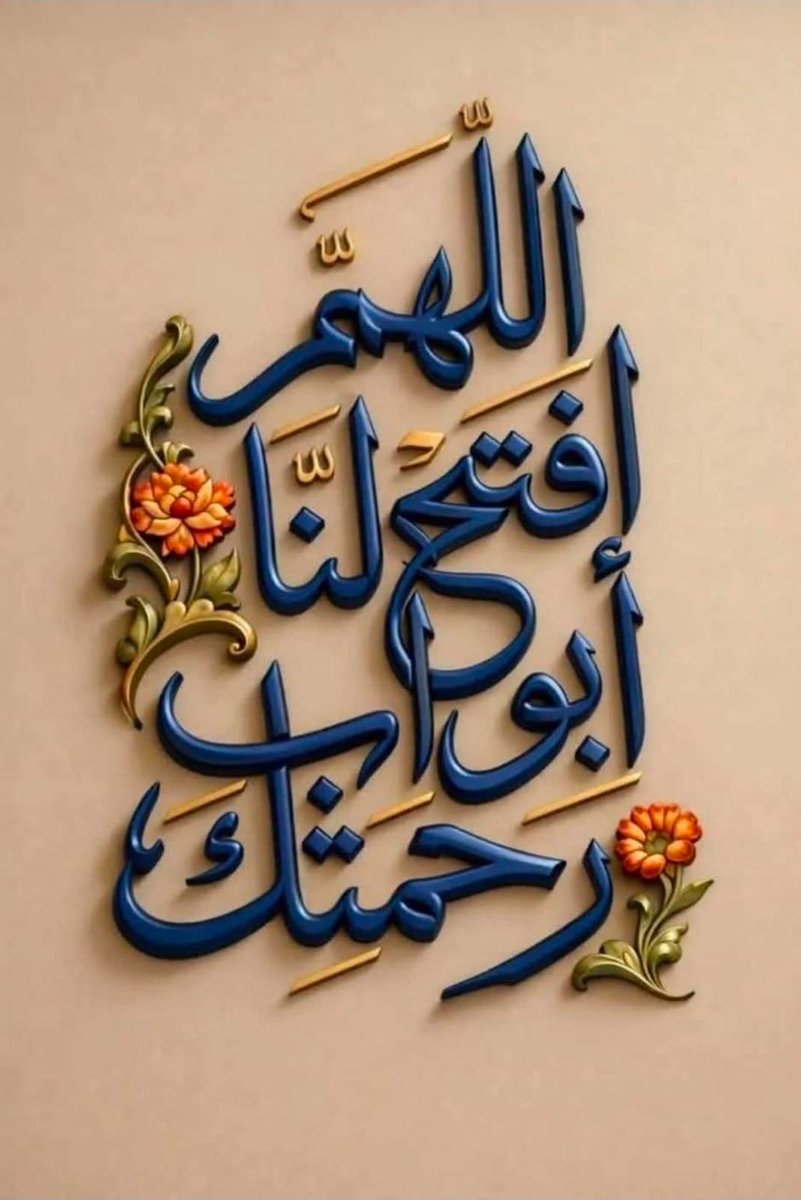 اللَّهمَّ
افتَحْ لنَّا
أبوابَ
رَحَمتِكَ